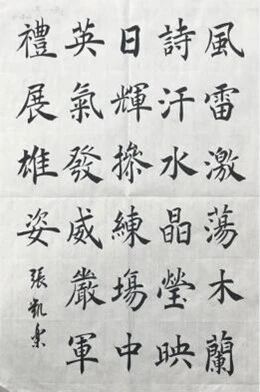 風雷激蕩木蘭
詩汗水晶瑩映
日輝摻練塲中
英氣發威嚴軍
禮展雄姿
張凱樂